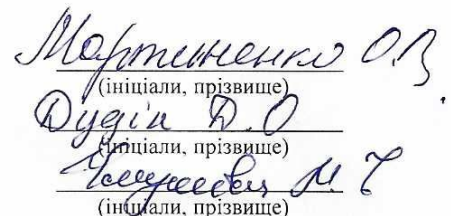 Мартиненко О.В.
(ініціали, прізвище)
Дудік Д.О
(ініціали, прізвище)
М.
(ініціали, прізвище)